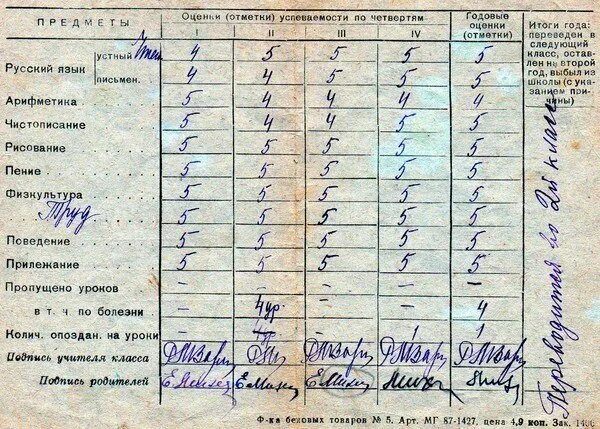 ПРЕДМЕТЫ Оценки (отметки) успеваемости по четвертям Годовые оценки (отметки) Итоги года: переведен в следующий класс, оставлен на второй год, выбыл из школы (с указанием причины)
I II III IV
Русский язык устный Чтен 4 5 5 5 5
письмен. 4 4 5 5 5
Арифметика 5 4 4 4 4
Чистописание 5 4 4 5 5
Рисование 5 5 5 5 5
Пение 5 5 5 5 5
Физкультура 5 5 5 5 5
Труд 5 5 5 5 5
Поведение 5 5 5 5 5
Прилежание 5 5 5 5 5
Пропущено уроков – – –
в т. ч. по болезни – 4 ур. – – 4
Колич. опоздан. на уроки – – 1 1
Подпись учителя класса
Подпись родителей
Переводится во 2й класс
Ф-ка беховых товаров № 5. Арт. МГ 87-1427, цена 4,9 коп. Зак.